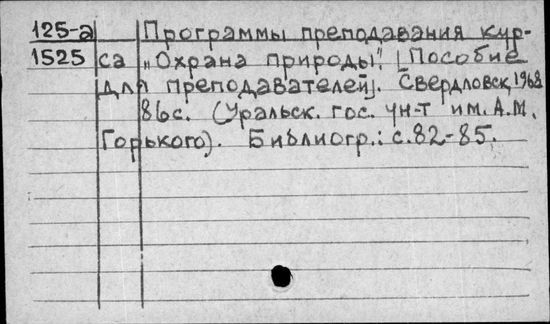 125-а Программы преподавания кур-
1525 са „Охрана природы". [Пособие
для преподавателей]. Свердловск, 1968
86с. (Уральск. гос. ун-т им. А.М.
Горького). Библиогр.: с.82-85.